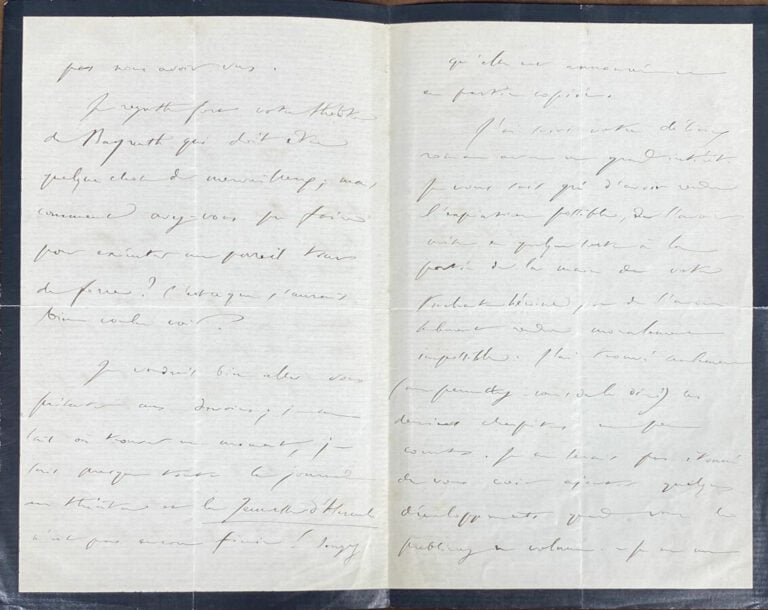 pas nous avoir vus.
Je regrette fort votre théâtre
de Bayreuth qui doit être
quelque chose de merveilleux ; mais
comment avez-vous pu faire
pour exécuter un pareil tour
de force ? C'est ce que j'aurais
bien voulu voir ?
Je voudrais bien aller vous
présenter mes devoirs ; je ne
sais où trouver un moment, je
suis presque toute la journée
au théâtre et la Jeunesse d'Hercule
n'est pas encore finie ! Songez
qu'elle est annoncée
en partie copiée.
J'ai suivi votre délicieux
roman avec un grand intérêt.
Je vous sais gré d'avoir rendu
l'expiation possible, de l'avoir
mise en quelque sorte à la
portée de la main de votre
touchante héroïne, et de l'avoir
rendue moralement
impossible. J'ai trouvé seulement
(me permettez-vous de le dire) les
derniers chapitres un peu
courts. Je ne serais pas étonné
de vous voir ajouter quelques
développements quand vous le
publierez en volume.